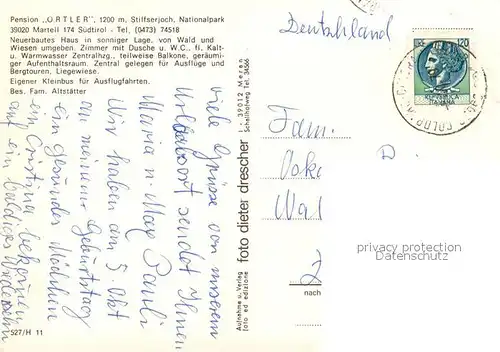 Pension „ORTLER", 1200 m, Stilfserjoch, Nationalpark
39020 Martell 174 Südtirol - Tel. (0473) 74518
Neuerbautes Haus in sonniger Lage, von Wald und
Wiesen umgeben. Zimmer mit Dusche u. W.C., fl. Kalt-
u. Warmwasser Zentralhzg., teilweise Balkone, geräumi-
ger Aufenthaltsraum. Zentral gelegen für Ausflüge und
Bergtouren, Liegewiese.
Eigener Kleinbus für Ausflugfahrten.
Bes. Fam. Altstätter
viele Grüsse von unserem
Urlaubsort sendet Ihnen
Maria u. Max Pauli
Wir haben am 5 Okt
an meinem Geburtstag
ein gesundes Mädchen
ein Cristina bekommen
auf ein baldiges Wiedersehn
527/H 11
Aufnahme u. Verlag
foto ed edizione
foto dieter drescher
I - 39012 Meran
Schallhofweg Tel. 34566
Deutschland
120
REPUBBLICA
ITALIANA
Fam.
Wal
D.
nach
PROTECTION DER
PHILAMARKT